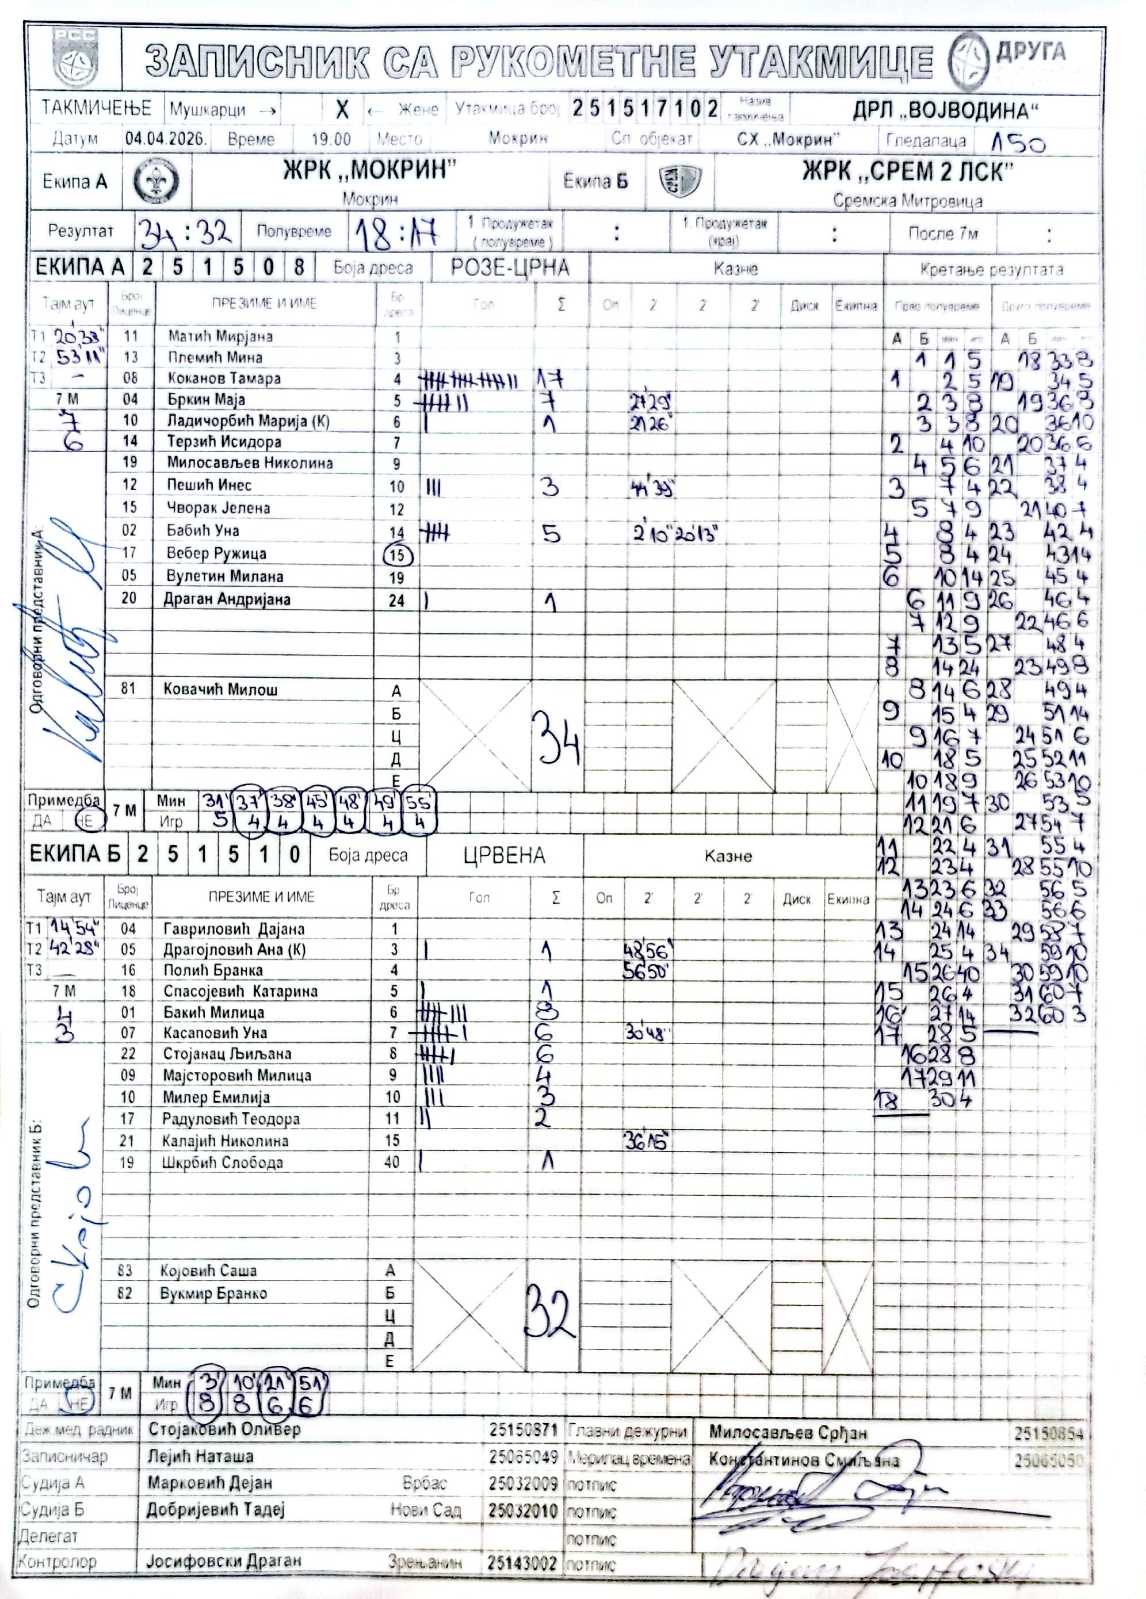 РСС ЗАПИСНИК СА РУКОМЕТНЕ УТАКМИЦЕ ДРУГА
ТАКМИЧЕЊЕ Мушкарци → X ← Жене Утакмица број 251517102 Назив такмичења ДРЛ „ВОЈВОДИНА“
Датум 04.04.2026. Време 19.00 Место Мокрин Сп. објекат СХ „Мокрин” Гледалаца 150
Екипа А ЖРК „МОКРИН” Мокрин Екипа Б ЖРК „СРЕМ 2 ЛСК” Сремска Митровица
Резултат 34:32 Полувреме 18:17 1 Продужетак (полувреме) : 1. Продужетак (крај) : После 7м :
ЕКИПА А 2 5 1 5 0 8 Боја дреса РОЗЕ-ЦРНА Казне Кретање резултата
Тајм аут Број Лиценце ПРЕЗИМЕ И ИМЕ Бр. дреса Гол Σ Оп 2' 2' 2' Диск Екипна Прво полувреме Друго полувреме
Т1 20'38" 11 Матић Мирјана 1 А Б А Б
Т2 53'11" 13 Племић Мина 3 1 1 5 18 33 8
Т3 — 08 Коканов Тамара 4 17 1 2 5 19 34 5
7 М 04 Бркин Маја 5 7 27'29" 2 3 8 19 36 8
7 10 Ладичорбић Марија (К) 6 1 21'26" 3 3 8 20 36 10
6 14 Терзић Исидора 7 2 4 10 20 36 6
19 Милосављев Николина 9 4 5 6 21 37 4
12 Пешић Инес 10 3 44'39" 3 7 4 22 38 4
15 Чворак Јелена 12 5 7 9 21 40 7
02 Бабић Уна 14 5 2'10" 20'13" 4 8 4 23 42 4
17 Вебер Ружица 15 5 8 4 24 43 14
05 Вулетин Милана 19 6 10 14 25 45 4
20 Драган Андријана 24 1 6 11 9 26 46 4
7 12 9 22 46 6
7 13 5 27 48 4
8 14 24 23 49 9
81 Ковачић Милош А 8 14 6 28 49 4
Б 9 15 4 29 51 14
Ц 34 9 16 7 24 51 6
Д 10 18 5 25 52 11
Е 10 18 9 26 53 10
Примедба ДА НЕ 7 М Мин 31' 37' 38' 45' 48' 49' 55' 11 19 7 30 53 5
Игр 5 4 4 4 4 4 4 12 21 6 27 54 7
ЕКИПА Б 2 5 1 5 1 0 Боја дреса ЦРВЕНА Казне 11 22 4 31 55 4
12 23 4 28 55 10
Тајм аут Број Лиценце ПРЕЗИМЕ И ИМЕ Бр. дреса Гол Σ Оп 2' 2' 2' Диск Екипна 13 23 6 32 56 5
14 24 6 33 56 6
Т1 14'54" 04 Гавриловић Дајана 1 13 24 14 29 58 7
Т2 42'28" 05 Драгојловић Ана (К) 3 1 48'56" 14 25 4 34 59 10
Т3 — 16 Полић Бранка 4 56'50" 15 26 40 30 59 10
7 М 18 Спасојевић Катарина 5 1 15 26 4 31 60 7
4 01 Бакић Милица 6 8 16 27 14 32 60 3
3 07 Касаповић Уна 7 6 30'48" 17 28 5
22 Стојанац Љиљана 8 6 16 28 8
09 Мајсторовић Милица 9 4 17 29 11
10 Милер Емилија 10 3 18 30 4
17 Радуловић Теодора 11 2
21 Калајић Николина 15 36'15"
19 Шкрбић Слобода 40 1
83 Којовић Саша А
82 Вукмир Бранко Б
Ц 32
Д
Е
Примедба ДА НЕ 7 М Мин 3' 10' 21' 51'
Игр 8 8 6 6
Одговорни представник А:
Одговорни представник Б:
Деж.мед. радник Стојаковић Оливер 25150871 Главни дежурни Милосављев Срђан 25150854
Записничар Лејић Наташа 25065049 Мерилац времена Константинов Смиљана 25065050
Судија А Марковић Дејан Врбас 25032009 потпис
Судија Б Добријевић Тадеј Нови Сад 25032010 потпис
Делегат потпис
Контролор Јосифовски Драган Зрењанин 25143002 потпис